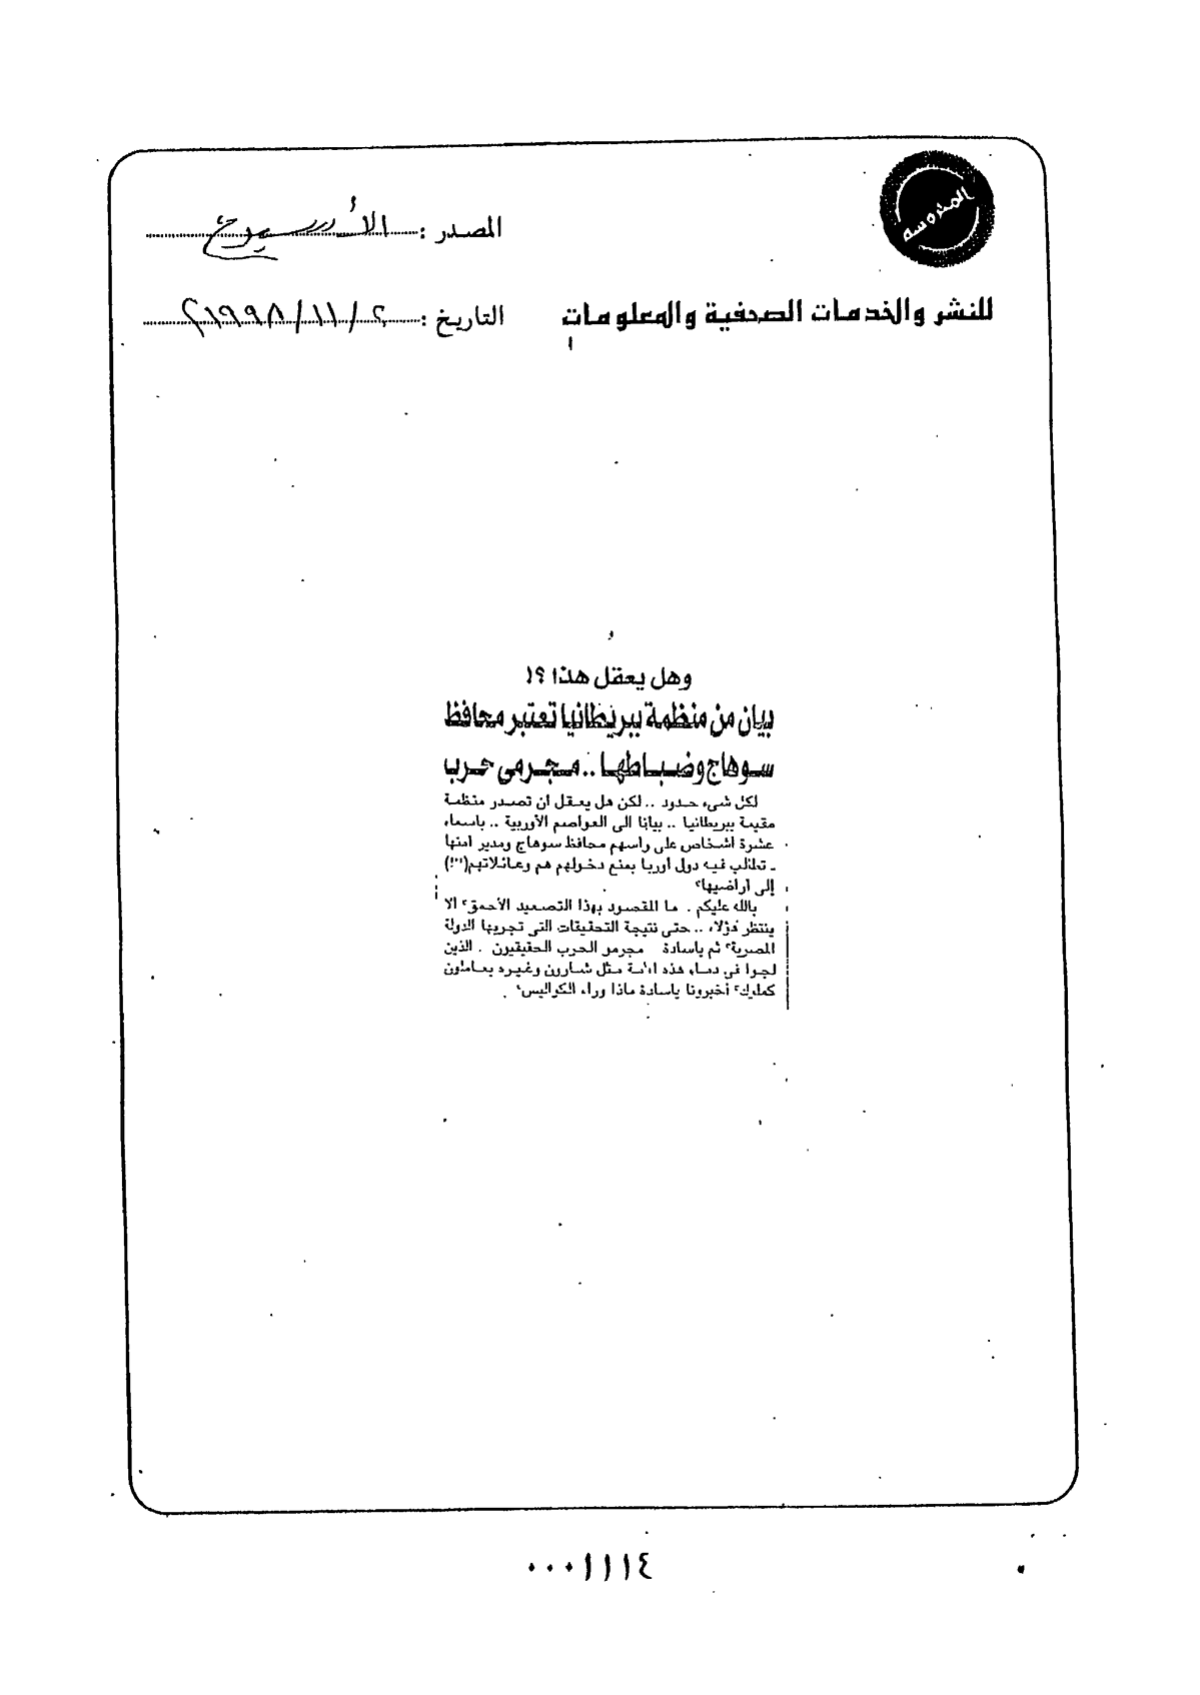 المحروسة
المصدر : الأسبوع
للنشر والخدمات الصحفية والمعلومات
التاريخ : ٢ / ١١ / ١٩٩٨
وهل يعقل هذا ؟!
بيان من منظمة ببريطانيا تعتبر محافظ
سوهاج وضباطها .. مجرمى حرب
لكل شىء حدود .. لكن هل يعقل ان تصدر منظمة
مقيمة ببريطانيا .. بيانا الى العواصم الأوربية .. باسماء
عشرة اشخاص على راسهم محافظ سوهاج ومدير امنها
ـ تطالب فيه دول أوربا بمنع دخولهم هم وعائلاتهم(!!)
إلى أراضيها؟
بالله عليكم . ما المقصود بهذا التصعيد الأحمق؟ الا
ينتظر هؤلاء .. حتى نتيجة التحقيقات التى تجريها الدولة
المصرية؟ ثم ياسادة مجرمو الحرب الحقيقيون . الذين
فى دماء هذه مثل شارون وغيره يعاملون
أخبرونا ياسادة ماذا وراء الكواليس؟
٠٠٠١١١٤